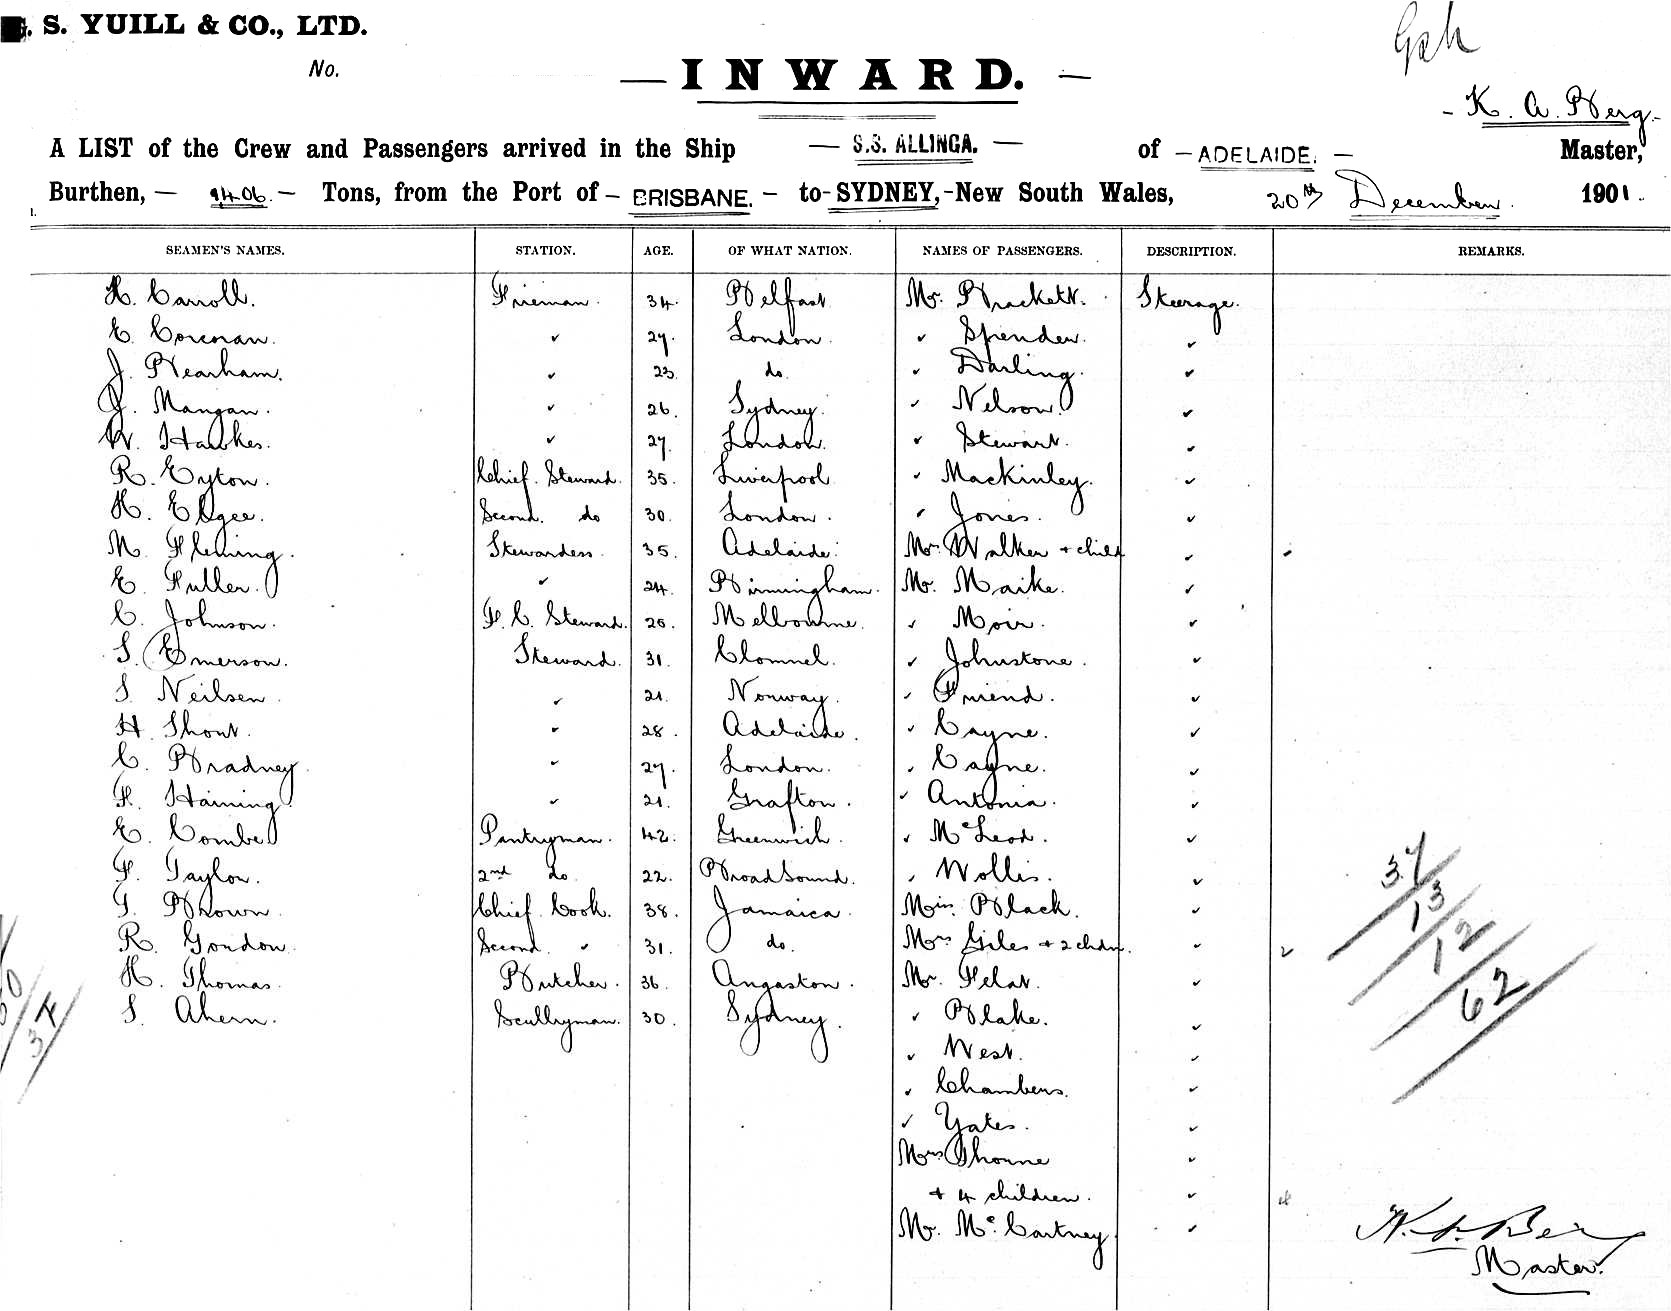 . S. YUILL & CO., LTD.
No.
— INWARD. —
K. A. Berg.
A LIST of the Crew and Passengers arrived in the Ship — S.S. ALLINGA. — of — ADELAIDE. — Master,
Burthen, — — Tons, from the Port of — BRISBANE. — to- SYDNEY, -New South Wales, 20th December. 1901.
SEAMEN'S NAMES. STATION. AGE. OF WHAT NATION. NAMES OF PASSENGERS. DESCRIPTION. REMARKS.
H. Carroll. Fireman. 34. Belfast Mr. Brackett. Steerage.
E. Corcoran. ✓ 27. London. ✓ Spender. ✓
J. Bearham. ✓ 23. do. ✓ Darling. ✓
J. Mangan. ✓ 26. Sydney. ✓ Nelson. ✓
W. Hawkes. ✓ 27. London. ✓ Stewart. ✓
R. Eyton. Chief. Steward. 35. Liverpool ✓ Mackinley. ✓
H. Elgee. Second. do 30. London. ✓ Jones. ✓
M. Fleming. Stewardess. 35. Adelaide. Mrs. Walker + child ✓
E. Fuller. ✓ 24. Birmingham. Mr. Maike. ✓
C. Johnson. F. C. Steward. Melbourne. ✓ Moir. ✓
S. Emerson. Steward. 31. Clomnel. ✓ Johnstone. ✓
S. Neilsen. ✓ 21. Norway. ✓ Friend. ✓
H. Short. ✓ 28. Adelaide. ✓ Cayne. ✓
C. Bradney. ✓ 27. London. ✓ Cayne. ✓
F. Haining ✓ 21. Grafton. ✓ Antonia. ✓
E. Combe Pantryman. 42. Greenwich. ✓ McLeod. ✓
F. Taylor. 2nd do. 22. Broad Sound. ✓ Wollis. ✓
G. Brown. Chief. Cook. 38. Jamaica. Miss. Black. ✓
R. Gordon. Second. ✓ 31. do. Mrs Giles + 2 chdn. ✓ 2
H. Thomas. Butcher. 36. Angaston. Mr. Felat. ✓
S. Ahern. Scullryman. 30. Sydney. ✓ Blake. ✓
✓ West. ✓
✓ Chambers. ✓
✓ Yates. ✓
Mrs Thorne ✓
+ 4 children. ✓ 4
Mr. McCartney ✓
37
13
12
62
34
Berg
Master.